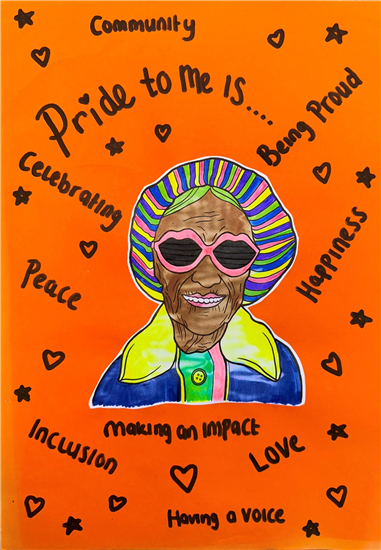 Community
Pride to Me is....
Being Proud
Celebrating
Happiness
Peace
Making an impact
Inclusion
Love
Having a voice